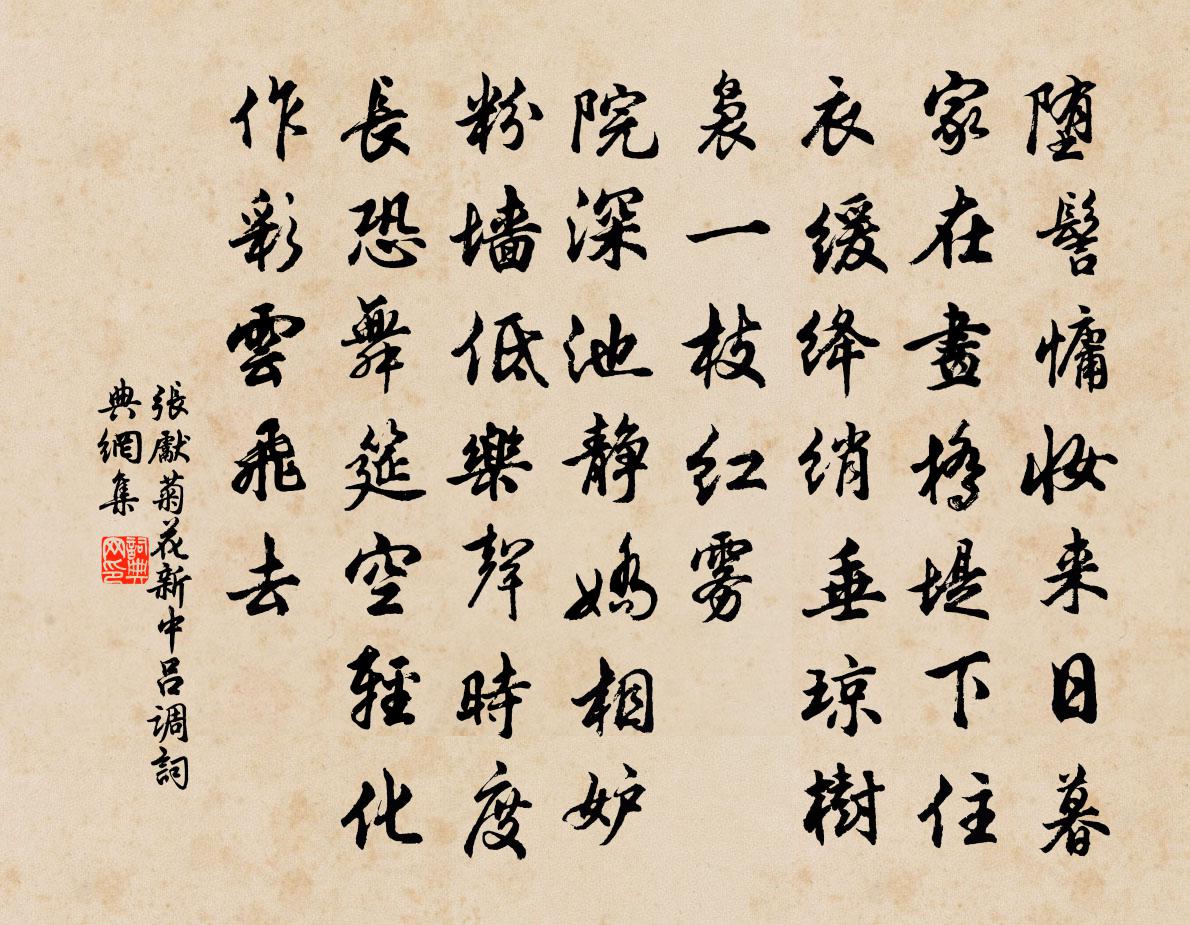 堕髻慵妆来日暮
家在畫橋堤下住
衣缓绛绡垂琼樹
袅一枝红雾
院深池静嬌相妒
粉墙低樂聲時度
長恐舞筵空輕化
作彩雲飛去
張獻菊花新中呂调詞
典網集
詞典网印